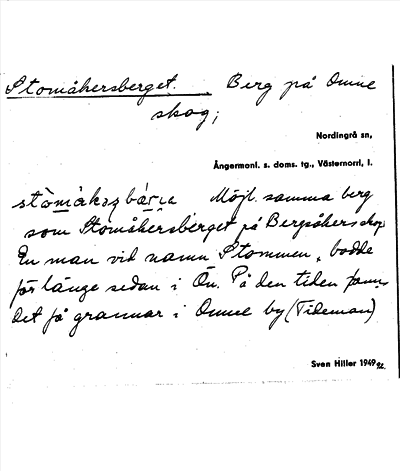 Stomåkersberget. Berg på Omne
skog;
Nordingrå sn,
Ångermanl. s. doms. tg., Västernorrl, l.
Möjl. samma berg
som Stomåkersberget på Bergsåkers skog
En man vid namn Stommen, bodde
för länge sedan i Ön. På den tiden fanns
det få grannar i Omne by (Tideman)
Sven Hiller 1949